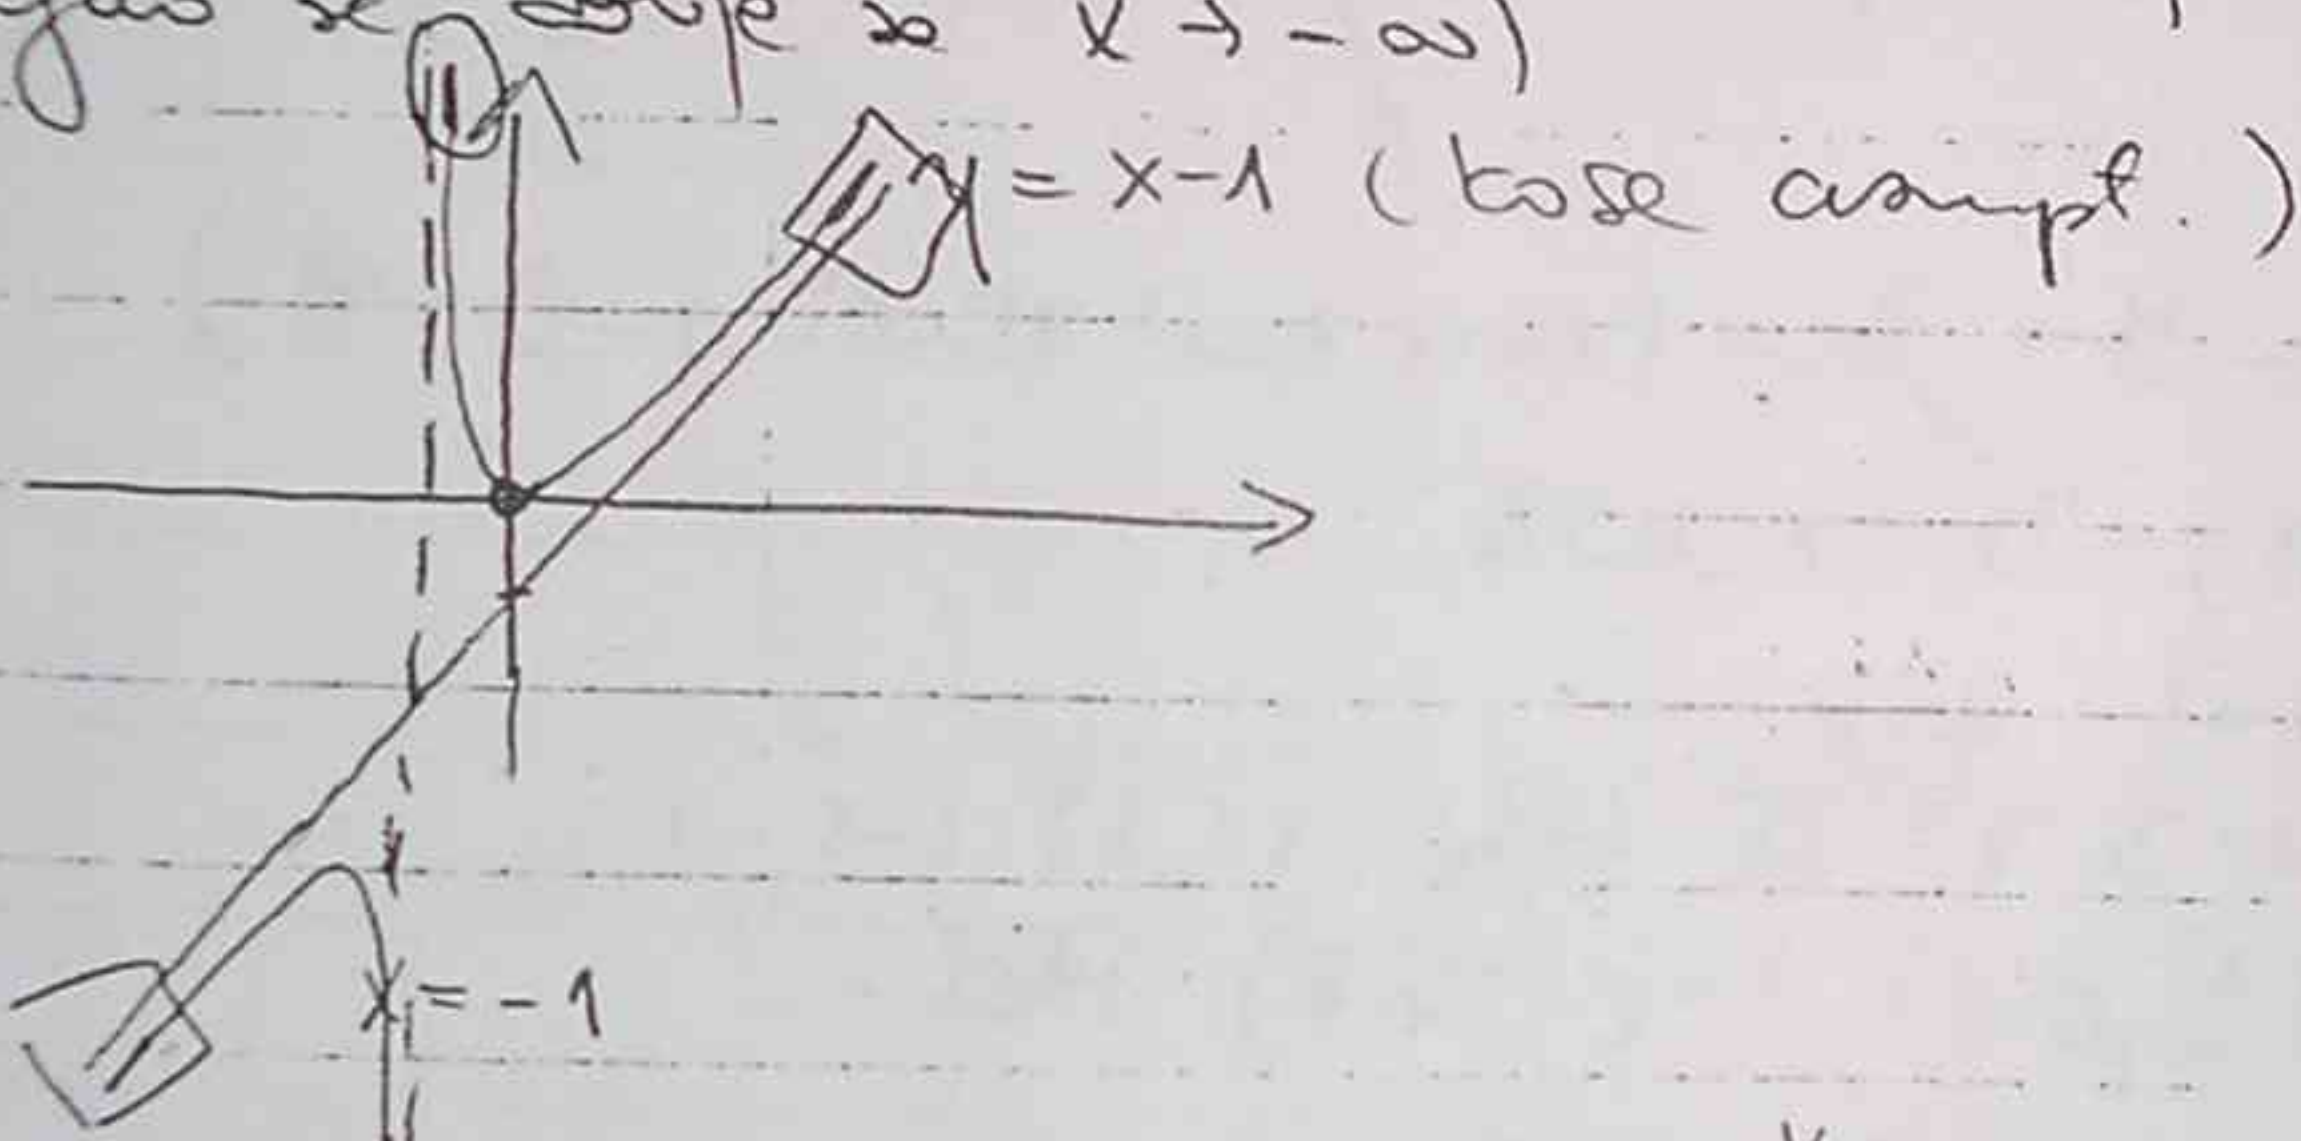 se x → -∞)
y = x-1 (kose asympt.)
x = -1